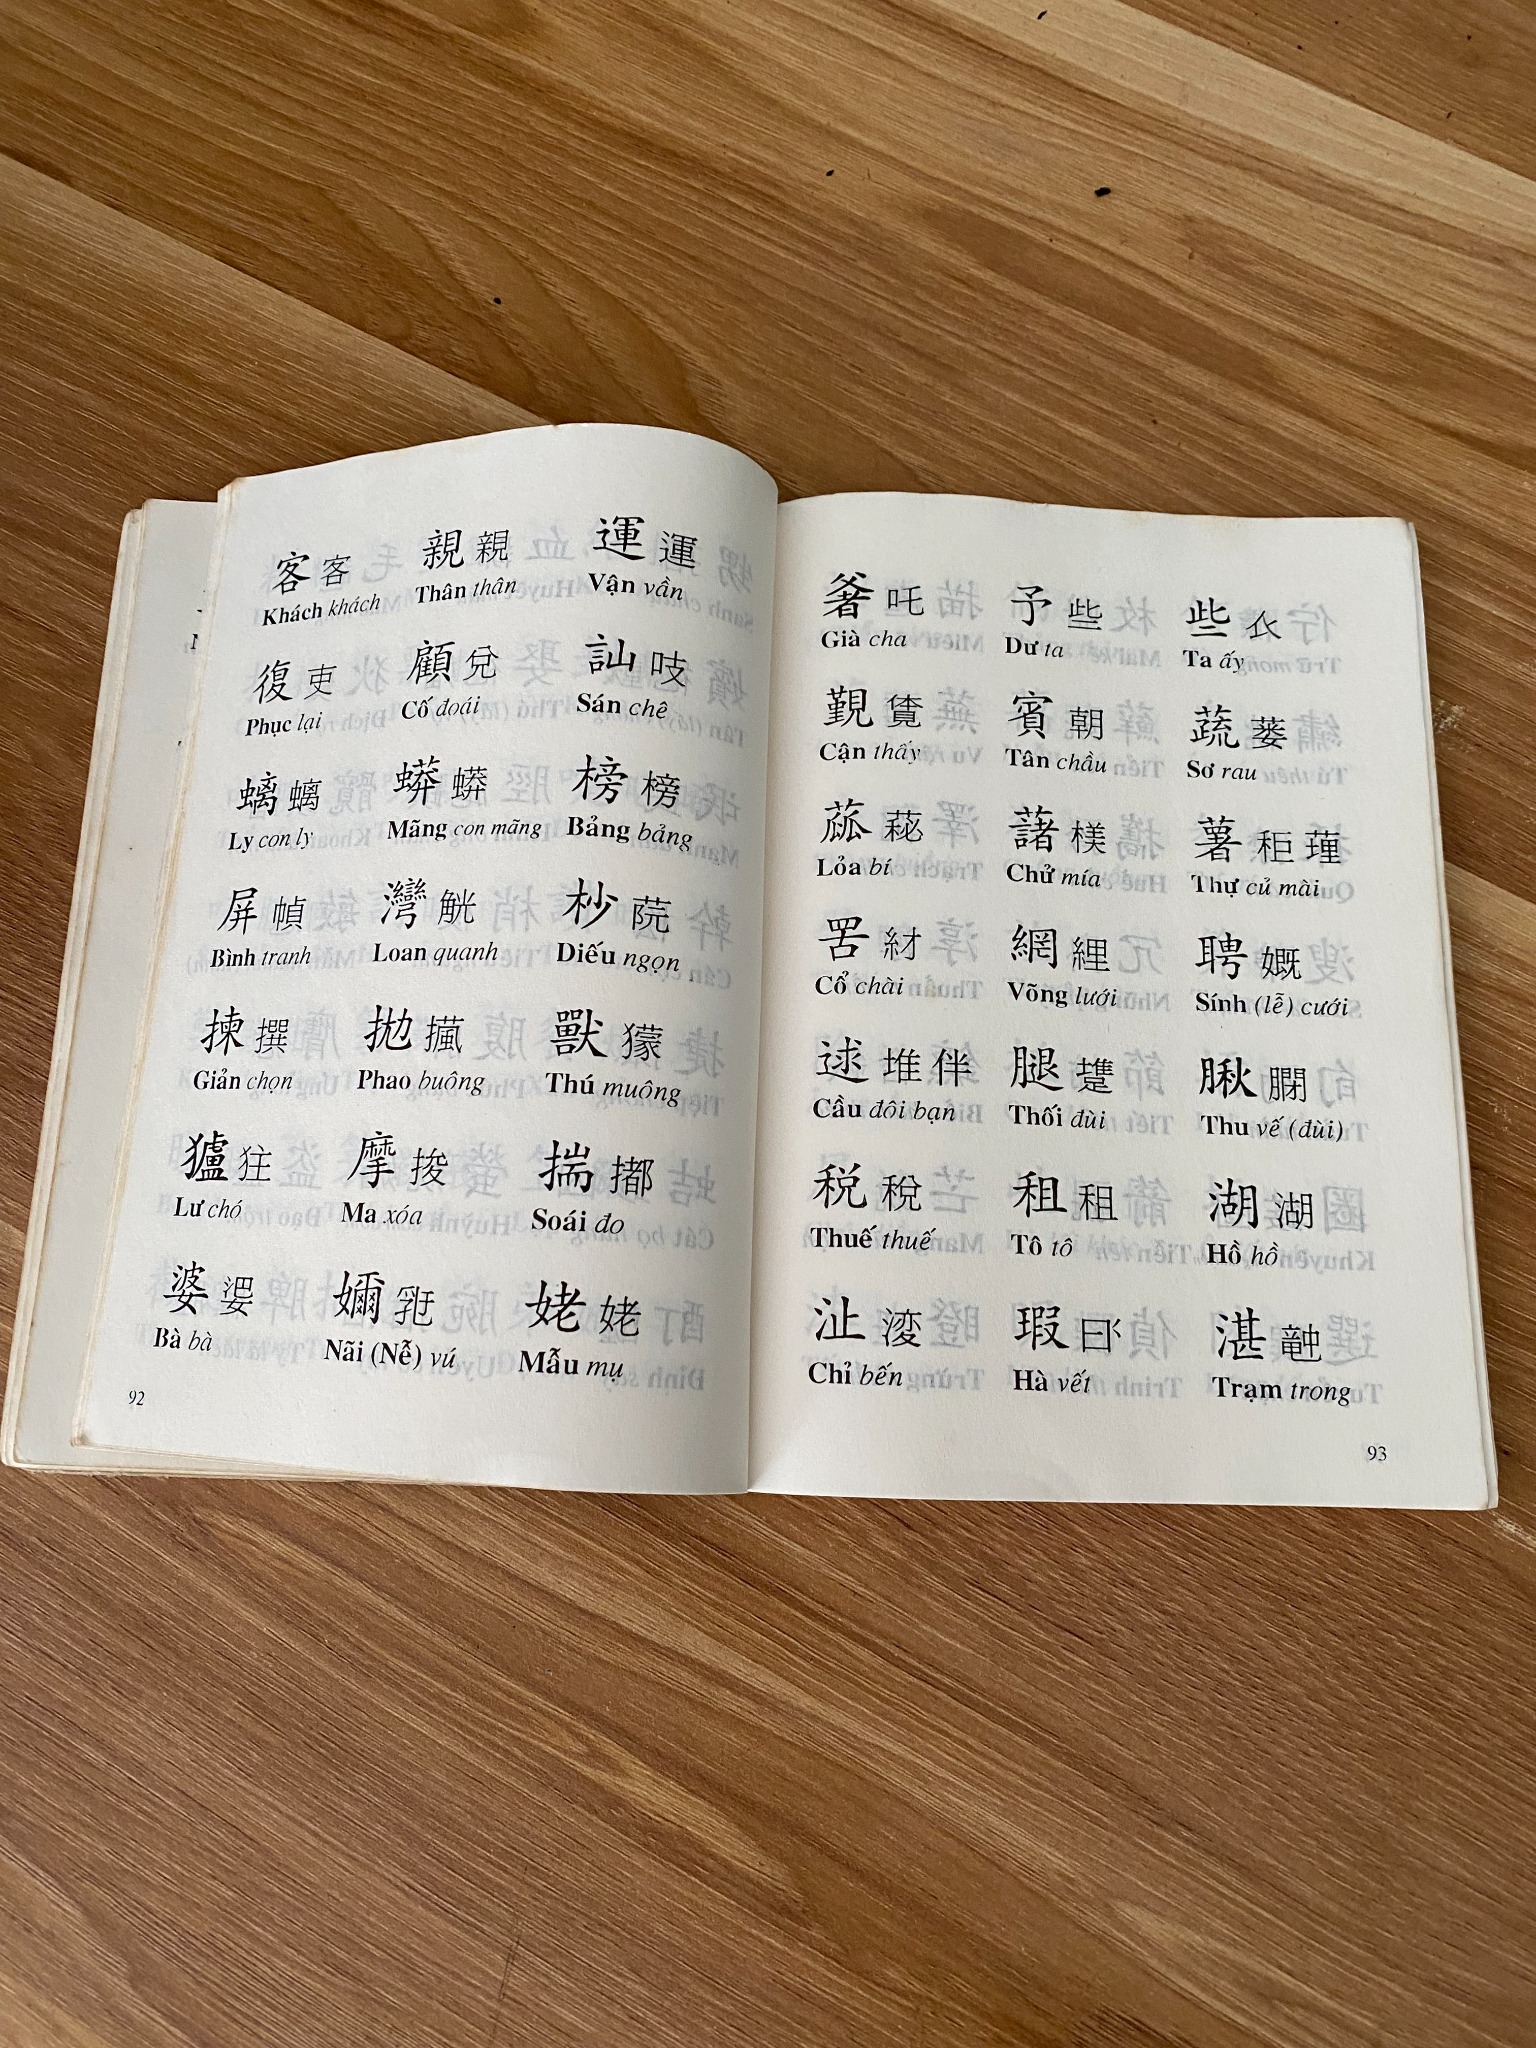 客客 親親 運運
Khách khách Thân thân Vận vần
復吏 顧兌 訕吱
Phục lại Cố đoái Sán chê
螭螭 蟒蟒 榜榜
Ly con ly Mãng con mãng Bảng bảng
屏幀 灣觥 杪
Bình tranh Loan quanh Diếu ngọn
揀撰 拋 獸
Giản chọn Phao buông Thú muông
獹㹥 摩捘 揣
Lư chó Ma xóa Soái đo
婆 嬭 姥姥
Bà bà Nãi (Nễ) vú Mẫu mụ
92
吒 予些 些
Già cha Dư ta Ta ấy
覲覧 賓朝 蔬蒌
Cận thấy Tân chầu Sơ rau
蓏 藷樸 薯秬
Lỏa bí Chử mía Thự củ mài
罟 網 聘
Cổ chài Võng lưới Sính (lễ) cưới
逑堆伴 腿 腬
Cầu đôi bạn Thối đùi Thu vế (đùi)
税稅 租租 湖湖
Thuế thuế Tô tô Hồ hồ
沚 瑕 湛
Chỉ bến Hà vết Trạm trong
93